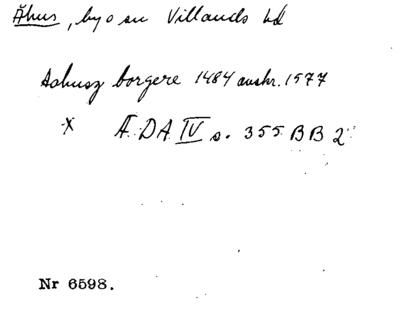 Åhus, by o sn Villands hd
Aahusz borgere 1484 avskr. 1577
x Æ.DA IV s. 355 BB 2
Nr 6598.